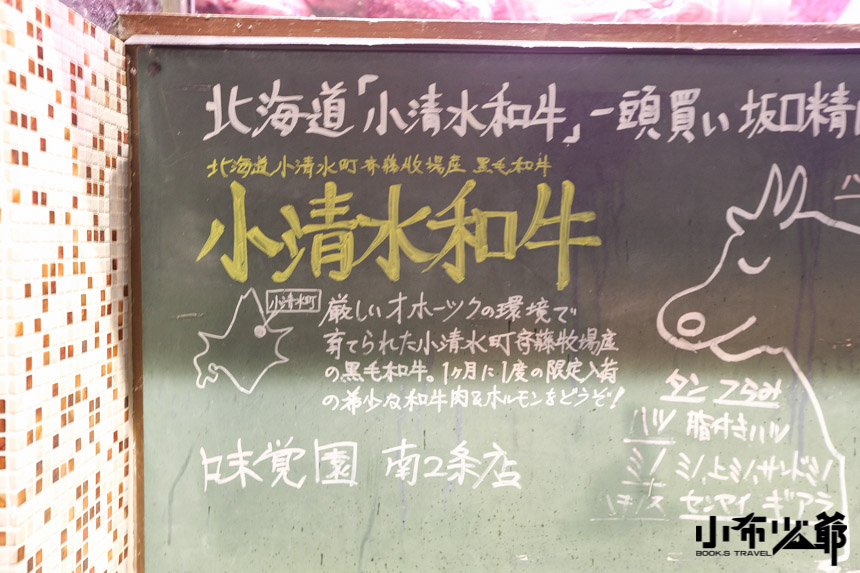 北海道「小清水和牛」一頭買い 坂口精
北海道小清水町斉藤牧場産 黒毛和牛
小清水和牛
小清水町
厳しいオホーツクの環境で
育てられた小清水町斉藤牧場産
の黒毛和牛。1ヶ月に1度の限定入荷
の希少な和牛肉&ホルモンをどうぞ!
味覚園 南2条店
タン つらみ
ハツ 脂付きハツ
ミノ ミノ,上ミノ,サンドミノ
ハチノス センマイ ギアラ
小布少爺
BOOK.S TRAVEL